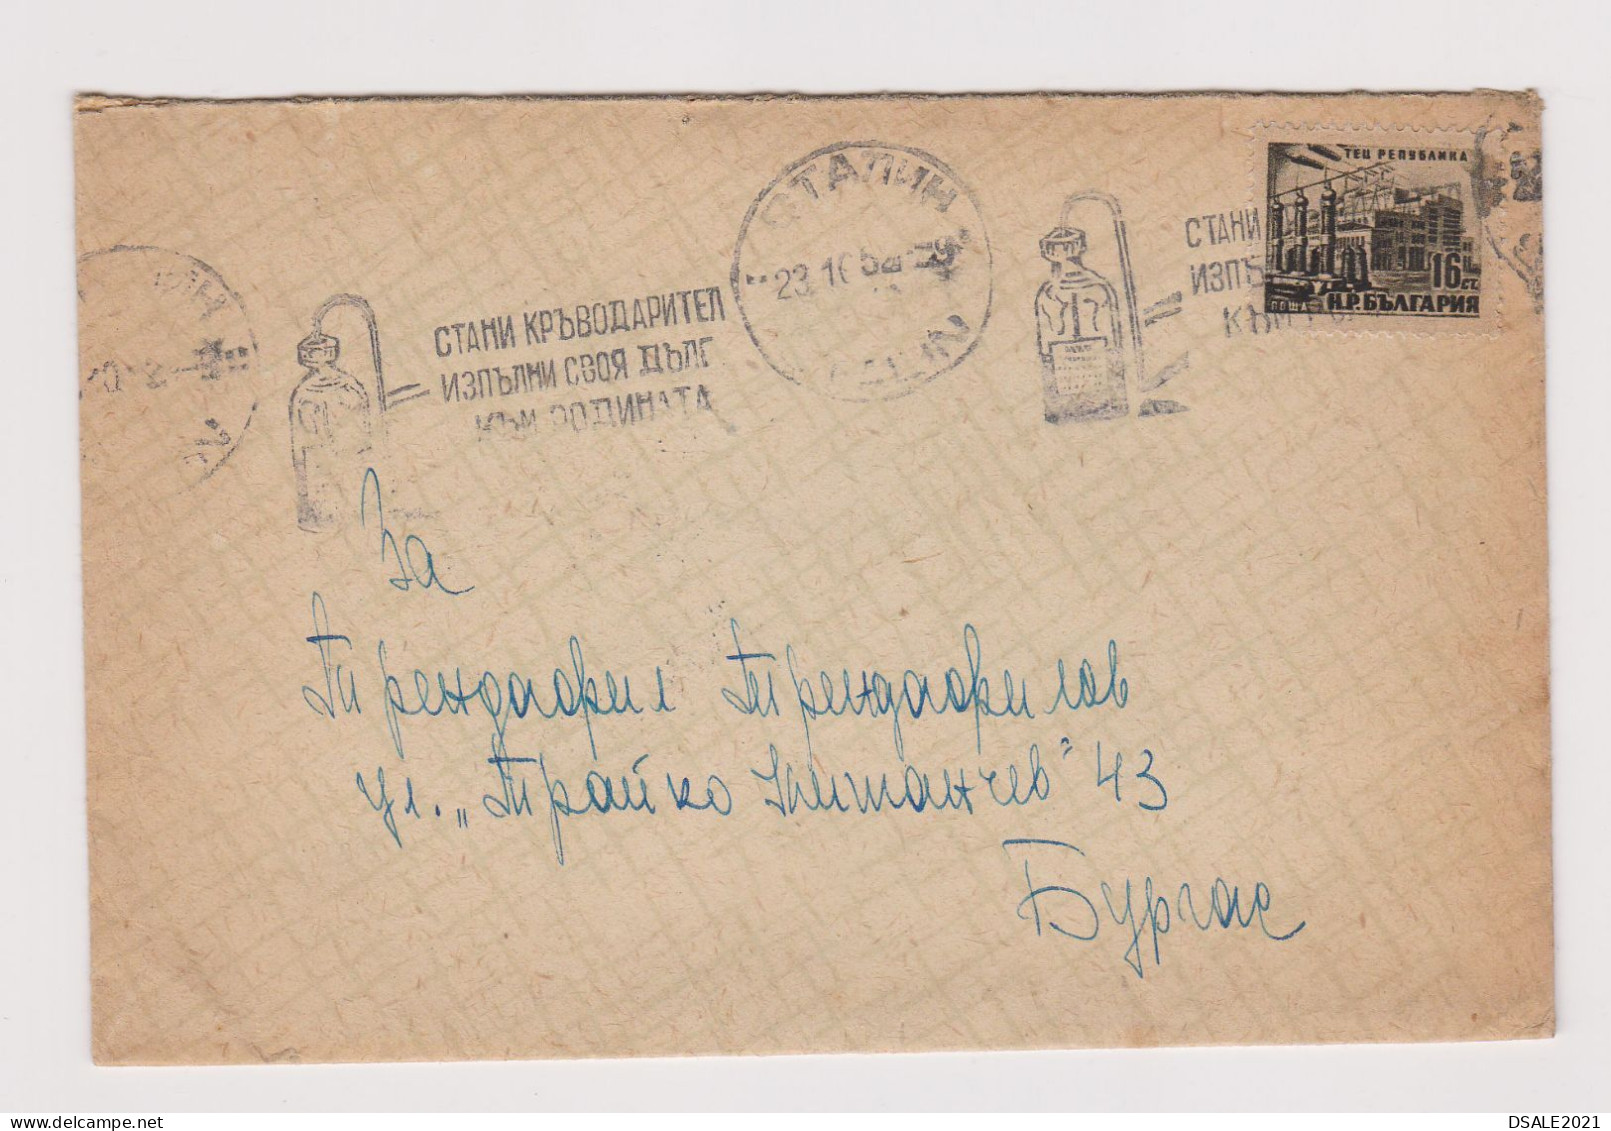 ТЕЦ РЕПУБЛИКА
16 СТ.
ПОЩА Н.Р. БЪЛГАРИЯ
СТАЛИН
23.10.52
STALIN
СТАНИ КРЪВОДАРИТЕЛ
ИЗПЪЛНИ СВОЯ ДЪЛГ
КЪМ РОДИНАТА
СТАНИ
ИЗПЪ
КЪМ
За
Трендафил Трендафилов
ул. „Трайко Китанчев" 43
Бургас
DSALE2021